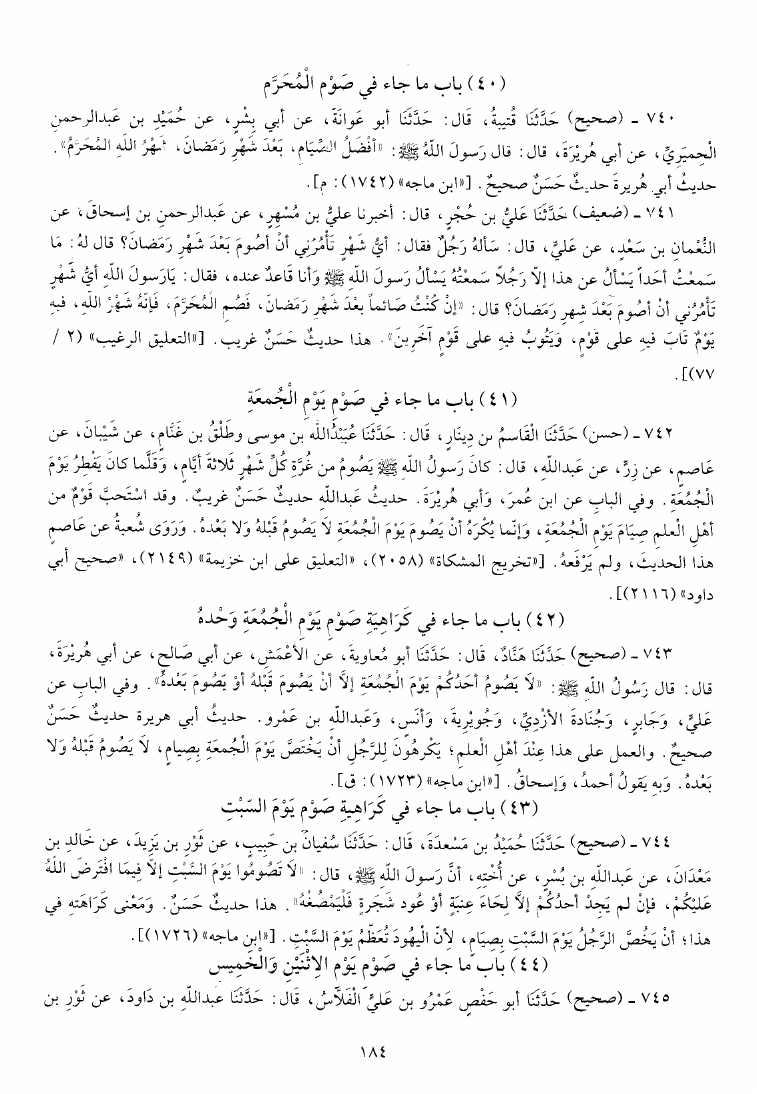 (٤٠) باب ما جاء في صَوْمِ الْمُحَرَّمِ
٧٤٠ ـ (صحيح) حَدَّثَنَا قُتيبةُ، قَال: حَدَّثَنَا أبو عَوانَةَ، عن أبي بِشْرٍ، عن حُمَيْدِ بن عَبدالرحمنِ
الْحِميَرِيِّ، عن أبي هُرَيْرَةَ، قال: قال رَسولُ اللّهُ ﷺ: «أفْضَلُ الصِّيَامِ، بَعْدَ شَهْرِ رَمَضانَ، شَهْرُ اللّهِ المُحَرَّمُ».
حديثُ أبي هُريرةَ حديثٌ حَسَنٌ صحيحٌ. [«ابن ماجه» (١٧٤٢): م].
٧٤١ ـ (ضعيف) حَدَّثَنَا عَليُّ بن حُجْرٍ، قال: أخبرنا عليُّ بن مُسْهِرٍ، عن عَبدالرحمنِ بن إسحاقَ، عن
النُّعْمانِ بن سَعْدٍ، عن عَليٍّ، قال: سَألهُ رَجُلٌ فقال: أيُّ شَهْرٍ تَأْمُرُنِي أنْ أصُومَ بَعْدَ شَهْرِ رَمَضانَ؟ قال لهُ: مَا
سَمعتُ أحَداً يَسْألُ عن هذا إلاّ رَجُلاً سَمعتُهُ يَسألُ رسولَ اللّهِ ﷺ وَأنا قَاعدٌ عنده، فقال: يَارَسولَ اللّهِ أيُّ شَهْرٍ
تَأْمُرُني أنْ أصُومَ بَعْدَ شهرِ رَمَضانَ؟ قال: «إنْ كُنْتُ صَائماً بعْدَ شَهْرِ رَمَضانَ، فَصُمِ الْمُحَرَّمَ، فَإنَّهُ شَهْرُ اللّهِ، فيهِ
يَوْمٌ تَابَ فيهِ على قَوْمٍ، وَيَتُوبُ فيهِ على قَوْمٍ آخَرِينَ». هذا حديثٌ حَسَنٌ غريب. [«التعليق الرغيب» (٢ /
٧٧)].
(٤١) باب ما جاء في صَوْمِ يَوْمِ الْجُمعَةِ
٧٤٢ ـ (حسن) حَدَّثَنَا الْقَاسمُ بن دِينارٍ، قَال: حَدَّثَنَا عُبَيْدُاللّه بن موسى وطَلْقُ بن غَنَّامٍ، عن شَيْبانَ، عن
عَاصمٍ، عن زِرٍّ، عن عَبداللّهِ، قال: كانَ رَسولُ اللّهِ ﷺ يَصُومُ من غُرَّةِ كُلِّ شَهْرٍ ثَلاثةَ أيَّامٍ، وَقَلَّما كانَ يَفْطِرُ يَوْمَ
الْجُمُعَةِ. وفي البابِ عن ابن عُمرَ، وَأبي هُرَيْرَةَ. حديثُ عَبداللّهِ حديثٌ حَسَنٌ غريبٌ. وقد اسْتَحبَّ قَوْمٌ من
أهْلِ الْعلمِ صِيَامَ يَوْمِ الْجُمُعَةِ، وَإنَّما يُكْرَهُ أنْ يَصُومَ يَوْمَ الْجُمُعَةِ لاَ يَصُومُ قَبْلهُ وَلا بَعْدهُ. وَرَوَى شُعبةُ عن عَاصمٍ
هذا الحديثَ، ولم يَرْفَعهُ. [«تخريج المشكاة» (٢٠٥٨)، «التعليق على ابن خزيمة» (٢١٤٩)، «صحيح أبي
داود» (٢١١٦)].
(٤٢) باب ما جاء في كَرَاهِيَةِ صَوْمِ يَوْمِ الْجُمُعَةِ وَحْدهُ
٧٤٣ ـ (صحيح) حَدَّثَنَا هَنَّادٌ، قَال: حَدَّثَنَا أبو مُعاويةَ، عن الأعْمَشِ، عن أبي صَالحٍ، عن أبي هُرَيْرَةَ،
قال: قال رَسُولُ اللّهِ ﷺ: «لاَ يَصُومُ أحَدُكُمْ يَوْمَ الْجُمُعَةِ إلاَّ أنْ يَصُومَ قَبْلهُ أوْ يَصُومَ بَعْدهُ». وفي البابِ عن
عَليٍّ، وَجَابرٍ، وَجُنَادةَ الأزْدِيِّ، وَجُويْرِيةَ، وَأنَسٍ، وَعَبداللّهِ بن عَمْرو. حديثُ أبي هريرة حديثٌ حَسَنٌ
صحيحٌ. والعمل على هذا عِنْدَ أهْلِ العلمِ؛ يَكْرهُونَ لِلرَّجُلِ أنْ يَخْتَصَّ يَوْمَ الْجُمعَةِ بِصِيامٍ، لاَ يَصُومُ قَبْلهُ وَلا
بَعْدهُ. وَبه يَقولُ أحمدُ، وَإسحاقُ. [«ابن ماجه» (١٧٢٣): ق].
(٤٣) باب ما جاء في كَرَاهِيةِ صَوْمِ يَوْمِ السَّبْتِ
٧٤٤ ـ (صحيح) حَدَّثَنَا حُمَيْدُ بن مَسْعدَةَ، قَال: حَدَّثَنَا سُفيانُ بن حَبيبٍ، عن ثَوْرِ بن يَزِيدَ، عن خَالدِ بن
مَعْدَانَ، عن عَبداللّه بن بُسْرٍ، عن أُخْتِهِ، أنَّ رَسولَ اللّهِ ﷺ، قال: «لاَ تَصُومُوا يَوْمَ السَّبْتِ إلاَّ فِيمَا افْتَرضَ اللّهُ
عَليْكُمْ، فَإنْ لم يَجِدْ أحدُكُمْ إلاَّ لِحَاءَ عِنَبَةٍ أوْ عُود شَجَرةٍ فَلْيَمْضُغْهُ». هذا حديثٌ حَسَنٌ. وَمَعْنى كَرَاهَتِه في
هذا؛ أنْ يَخُصَّ الرَّجُلُ يَوْمَ السَّبْتِ بِصِيامٍ، لأنَّ الْيهُودَ تُعَظِّمُ يَوْمَ السَّبْتِ. [«ابن ماجه» (١٧٢٦)].
(٤٤) باب ما جاء في صَوْمِ يَوْمِ الإثْنَيْنِ وَالْخَمِيسِ
٧٤٥ ـ (صحيح) حَدَّثَنَا أبو حَفْصٍ عَمْرُو بن عَليٍّ الْفَلاَّسُ، قَال: حَدَّثَنَا عَبداللّهِ بن دَاودَ، عن ثَوْرِ بن
١٨٤